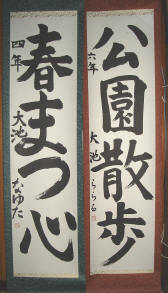 公園散歩
六年 大池 らら
春まつ心
四年 大池 なゆた